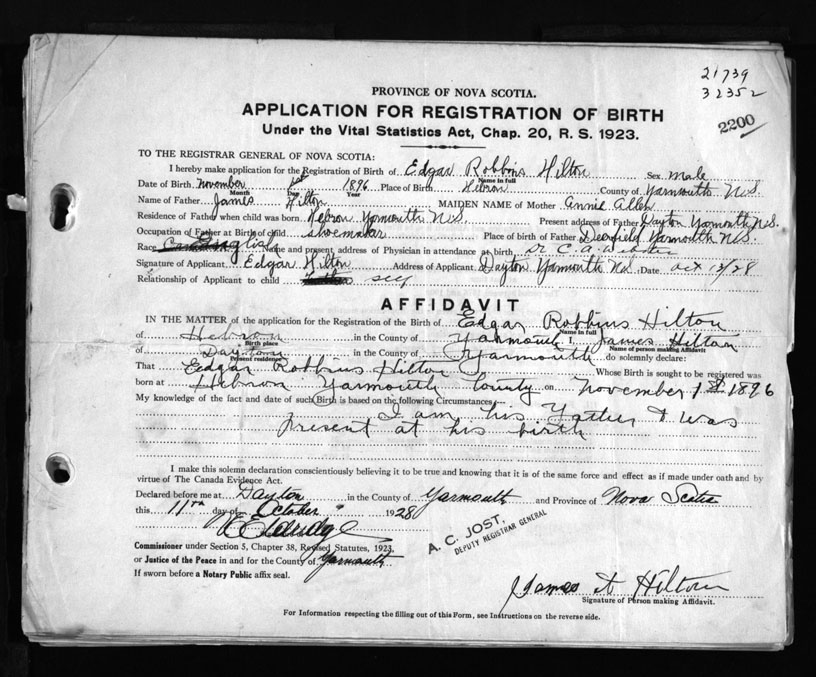 21739
32352
2200
PROVINCE OF NOVA SCOTIA.
APPLICATION FOR REGISTRATION OF BIRTH
Under the Vital Statistics Act, Chap. 20, R. S. 1923.
TO THE REGISTRAR GENERAL OF NOVA SCOTIA:
I hereby make application for the Registration of Birth of Edgar Robbins Hilton Sex male
Name in full
Date of Birth November 1st 1896 Place of Birth Hebron County of Yarmouth N.S.
Month Day Year
Name of Father James Hilton MAIDEN NAME of Mother Annie Allen
Residence of Father when child was born Hebron Yarmouth N.S. Present address of Father Dayton Yarmouth N.S.
Occupation of Father at Birth of child shoemaker Place of birth of Father Deerfield Yarmouth N.S.
Race English Name and present address of Physician in attendance at birth Dr C. A. Webster
Signature of Applicant Edgar Hilton Address of Applicant Dayton Yarmouth N.S. Date Oct /28
Relationship of Applicant to child self
AFFIDAVIT
IN THE MATTER of the application for the Registration of Birth of Edgar Robbins Hilton
Name in full
of Hebron in the County of Yarmouth I, James Hilton
Birth place Name of person making Affidavit
of Dayton in the County of Yarmouth do solemnly declare:
Present residence
That Edgar Robbins Hilton Whose Birth is sought to be registered was
born at Hebron Yarmouth County on November 1st 1896
My knowledge of the fact and date of such Birth is based on the following Circumstances: I am his Father & was
Present at his birth
I make this solemn declaration conscientiously believing it to be true and knowing that it is of the same force and effect as if made under oath and by
virtue of The Canada Evidence Act.
Declared before me at Dayton in the County of Yarmouth and Province of Nova Scotia
this 11th day of October 1928
A. C. JOST.
DEPUTY REGISTRAR GENERAL
Commissioner under Section 5, Chapter 38, Revised Statutes, 1923,
or Justice of the Peace in and for the County of Yarmouth
If sworn before a Notary Public affix seal.
James A Hilton
Signature of Person making Affidavit.
For Information respecting the filling out of this Form, see Instructions on the reverse side.